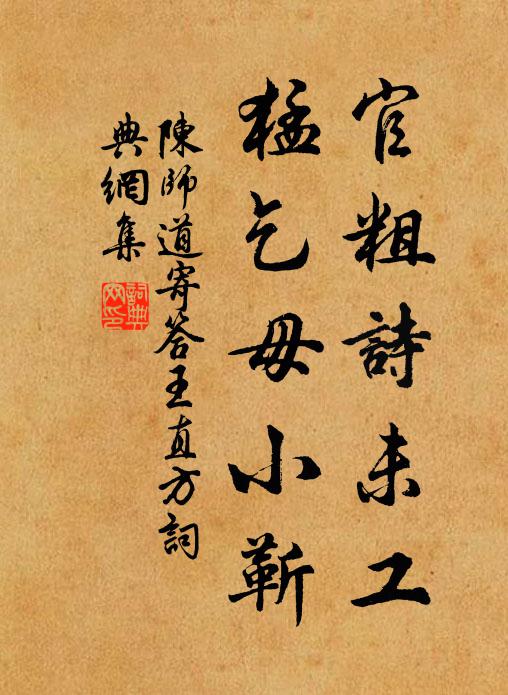 官粗詩未工
猛乞毋小靳
陳師道寄答王直方詞
典網集
詞典
网印